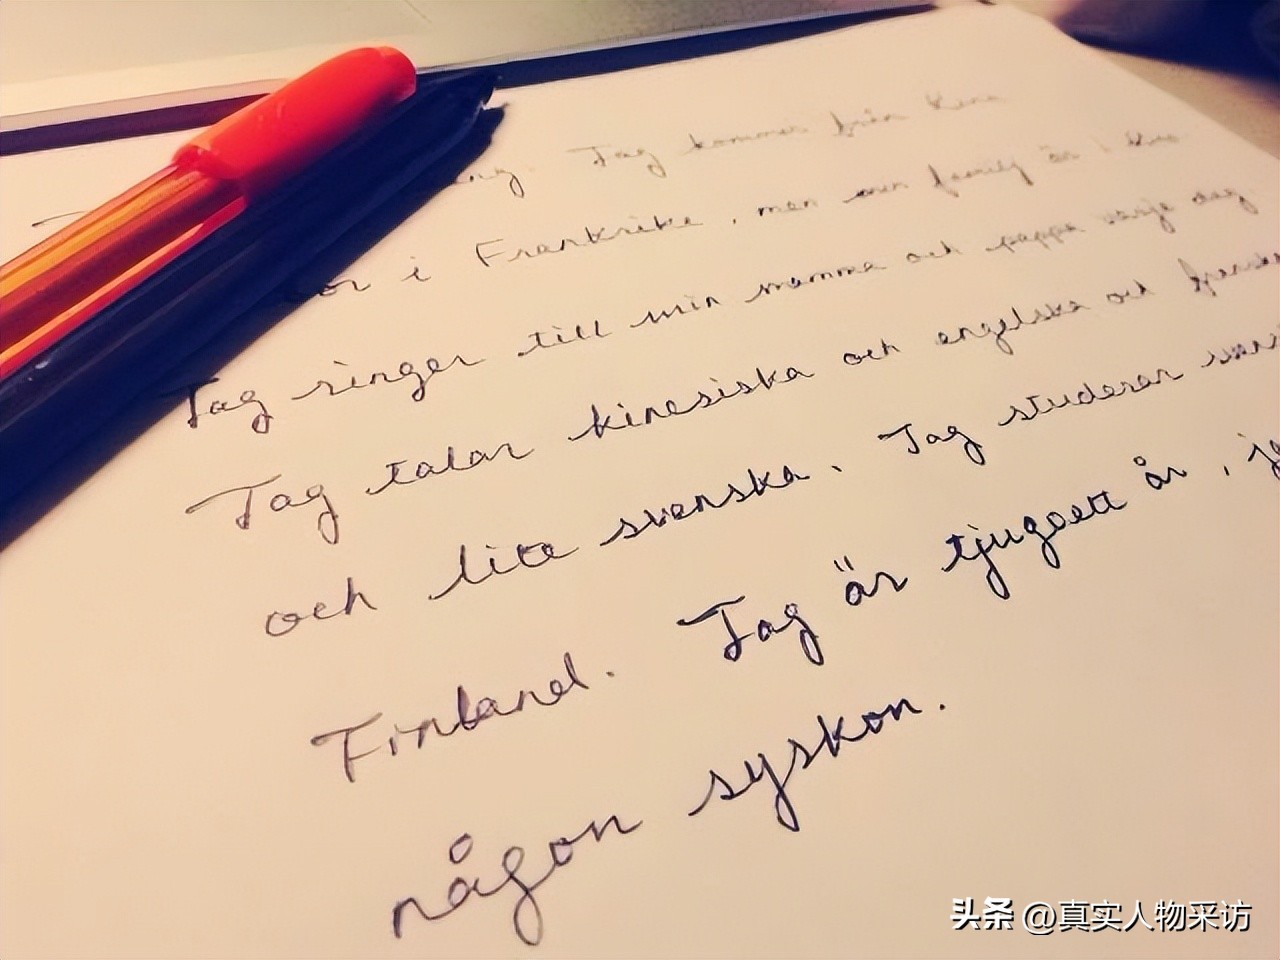 Jag kommer från Kina
i Frankrike, men min family är i Kina
Jag ringer till min mamma och pappa varje dag.
Jag talar kinesiska och engelska och
och lite svenska. Jag studerar
Finland. Jag är tjugoett år,
någon syskon.
头条 @真实人物采访